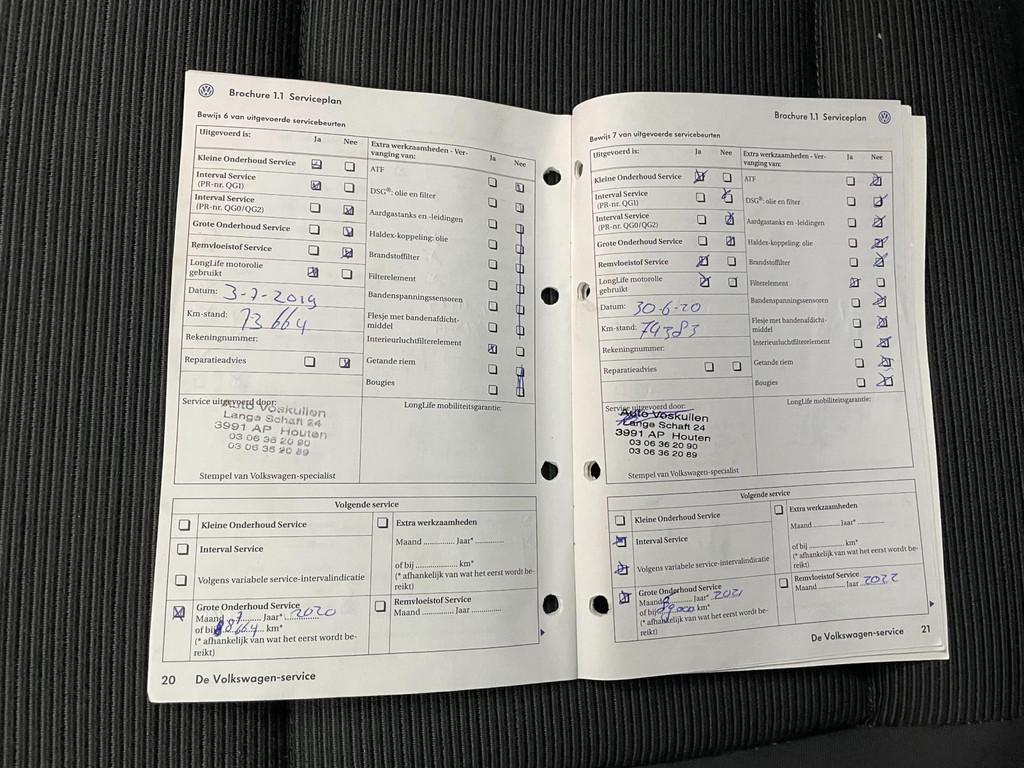 Brochure 1.1 Serviceplan
Bewijs 6 van uitgevoerde servicebeurten
Uitgevoerd is: Ja Nee
Kleine Onderhoud Service
Interval Service
(PR-nr. QG1)
Interval Service
(PR-nr. QG0/QG2)
Grote Onderhoud Service
Remvloeistof Service
LongLife motorolie
gebruikt
Datum: 3-7-2019
Km-stand: 73664
Rekeningnummer:
Reparatieadvies
Extra werkzaamheden - Ver-
vanging van: Ja Nee
ATF
DSG®: olie en filter
Aardgastanks en -leidingen
Haldex-koppeling: olie
Brandstoffilter
Filterelement
Bandenspanningssensoren
Flesje met bandenafdicht-
middel
Interieurluchtfilterelement
Getande riem
Bougies
Service uitgevoerd door:
Auto Voskuilen
Lange Schaft 24
3991 AP Houten
03 06 36 20 90
03 06 36 20 89
Stempel van Volkswagen-specialist
LongLife mobiliteitsgarantie:
Volgende service
Kleine Onderhoud Service
Interval Service
Volgens variabele service-intervalindicatie
Grote Onderhoud Service
Maand 7 Jaar* 2020
of bij 88664 km*
(* afhankelijk van wat het eerst wordt be-
reikt)
Extra werkzaamheden
Maand .............. Jaar* .............
of bij .................... km*
(* afhankelijk van wat het eerst wordt be-
reikt)
Remvloeistof Service
Maand .............. Jaar .............
20 De Volkswagen-service
Brochure 1.1 Serviceplan
Bewijs 7 van uitgevoerde servicebeurten
Uitgevoerd is: Ja Nee
Kleine Onderhoud Service
Interval Service
(PR-nr. QG1)
Interval Service
(PR-nr. QG0/QG2)
Grote Onderhoud Service
Remvloeistof Service
LongLife motorolie
gebruikt
Datum: 30-6-20
Km-stand: 74383
Rekeningnummer:
Reparatieadvies
Extra werkzaamheden - Ver-
vanging van: Ja Nee
ATF
DSG®: olie en filter
Aardgastanks en -leidingen
Haldex-koppeling: olie
Brandstoffilter
Filterelement
Bandenspanningssensoren
Flesje met bandenafdicht-
middel
Interieurluchtfilterelement
Getande riem
Bougies
Service uitgevoerd door:
Auto Voskuilen
Lange Schaft 24
3991 AP Houten
03 06 36 20 90
03 06 36 20 89
Stempel van Volkswagen-specialist
LongLife mobiliteitsgarantie:
Volgende service
Kleine Onderhoud Service
Interval Service
Volgens variabele service-intervalindicatie
Grote Onderhoud Service
Maand Jaar* 2021
of bij km*
(* afhankelijk van wat het eerst wordt be-
reikt)
Extra werkzaamheden
Maand .............. Jaar* .............
of bij .................... km*
(* afhankelijk van wat het eerst wordt be-
reikt)
Remvloeistof Service
Maand .............. Jaar 2022
De Volkswagen-service 21